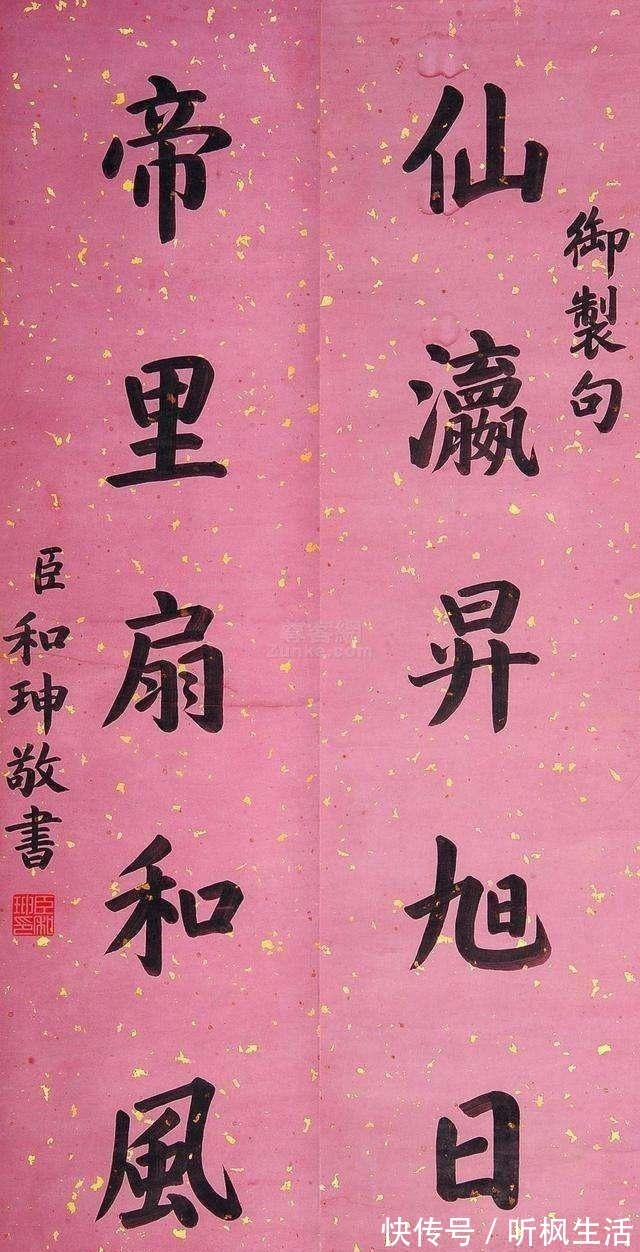 御製句
仙瀛昇旭日
帝里扇和風
臣和珅敬書
臣和珅印
zunke.com
快传号/听枫生活